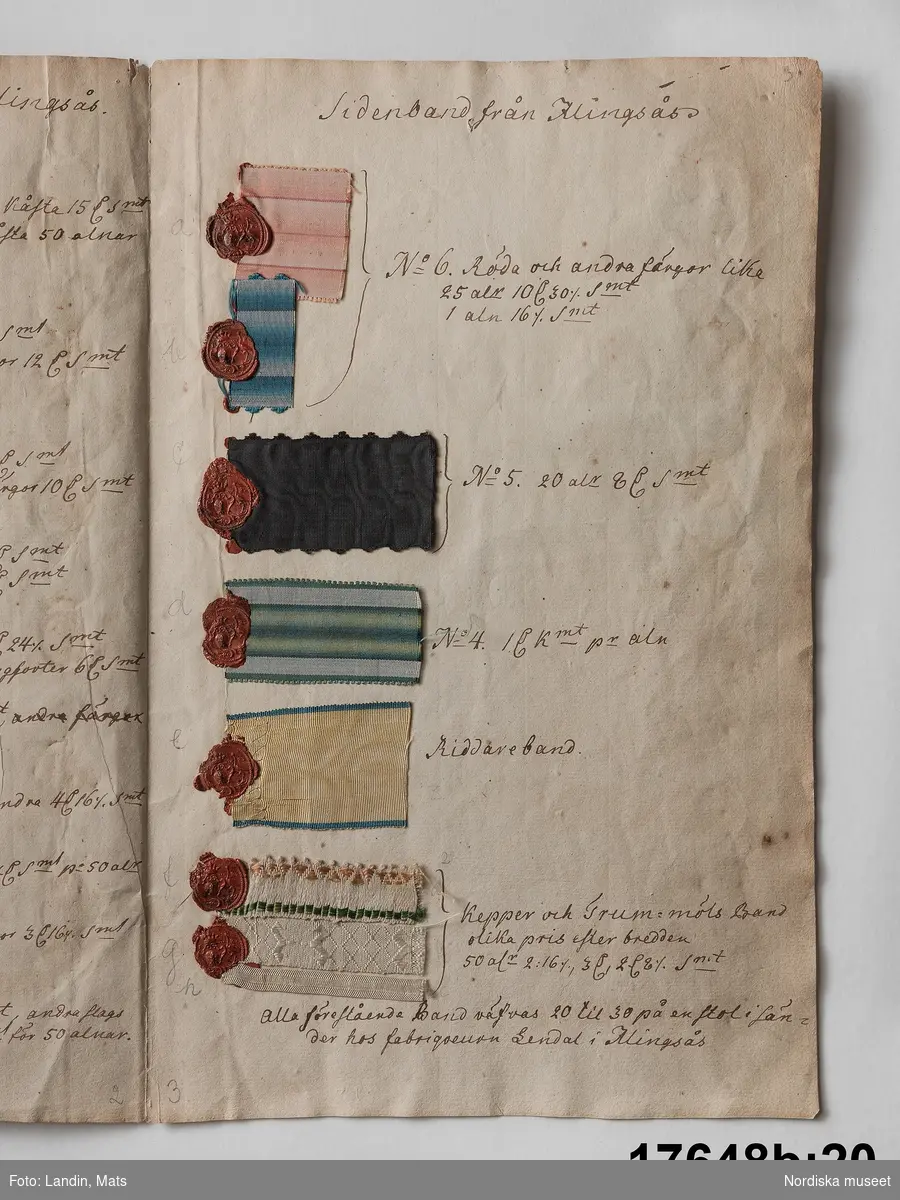 lingsås.
Kåsta 15 smt
50 alnar
smt
or 12 smt
smt
10 smt
smt
smt
24 smt
6 smt
andra färgor
ndra 4 16 smt
smt pr 50 alr
or 3 16 smt
andra slags
för 50 alnar.
2
3
Sidenband från Alingsås
a
No 6. Röda och andra färgor lika
25 alr 10 30 smt
1 aln 16 smt
b
c
No 5. 20 alr 8 smt
d
No 4. 1 kmt pr aln
e
Riddareband.
f
g
h
Kepper och Trum=möls Band
olika pris efter bredden
50 alr 2:16, 3, 2 8 smt
alla föreslående Band väfvas 20 til 30 på en stol i sän=
der hos fabriqueurn Lendal i Alingsås
3
17648b:20
Foto: Landin, Mats
Nordiska museet